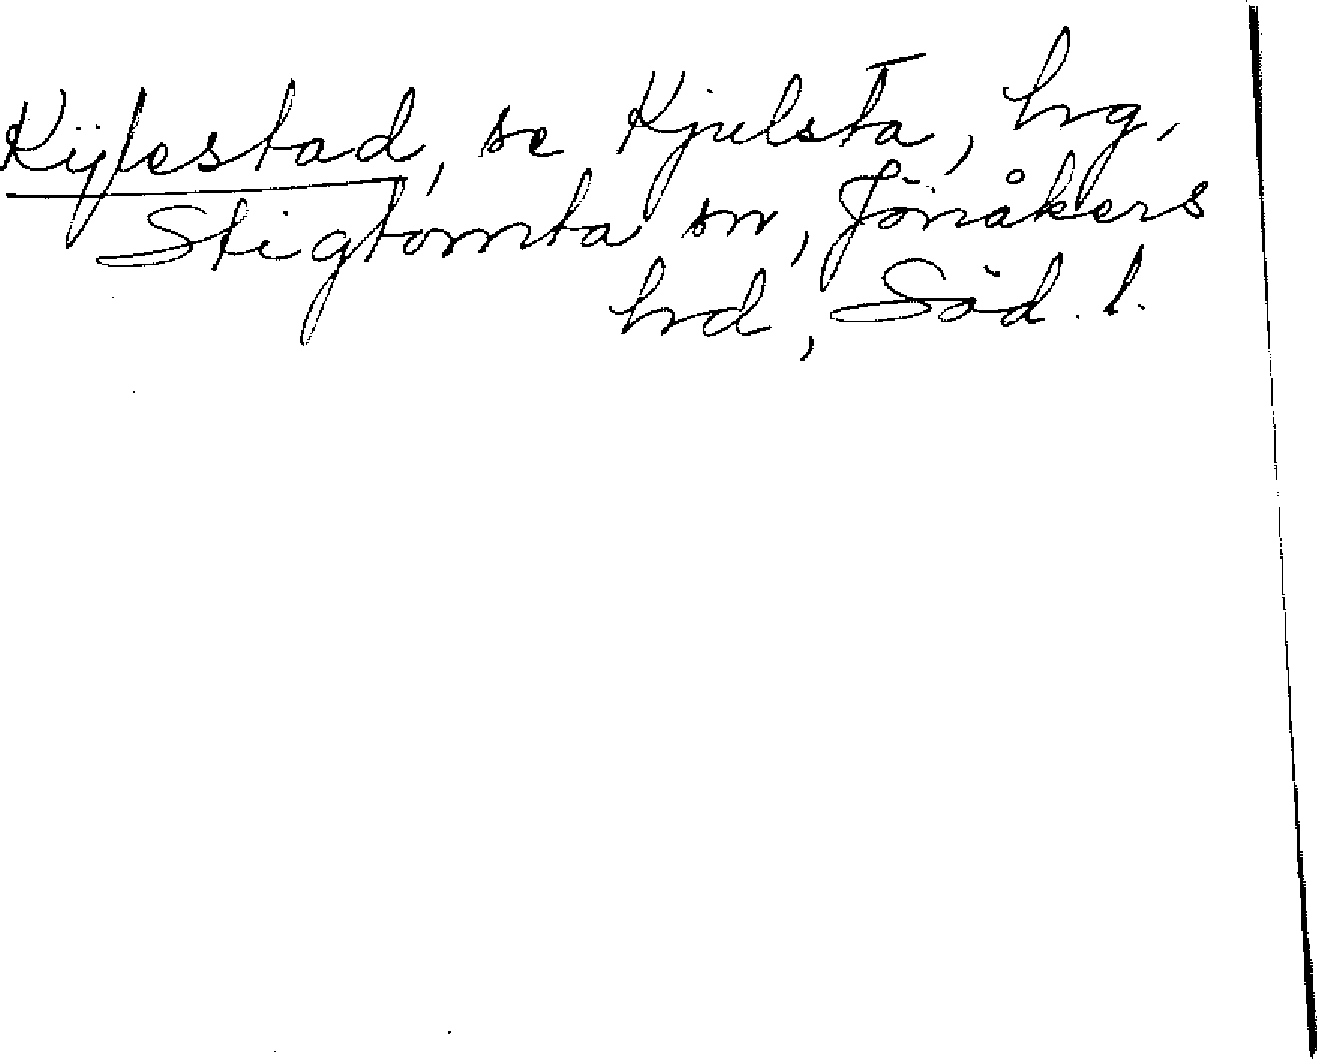 Kÿlestad, se Kjulsta, hg,
Stigtomta sn, Jönåkers
hd, Söd. l.